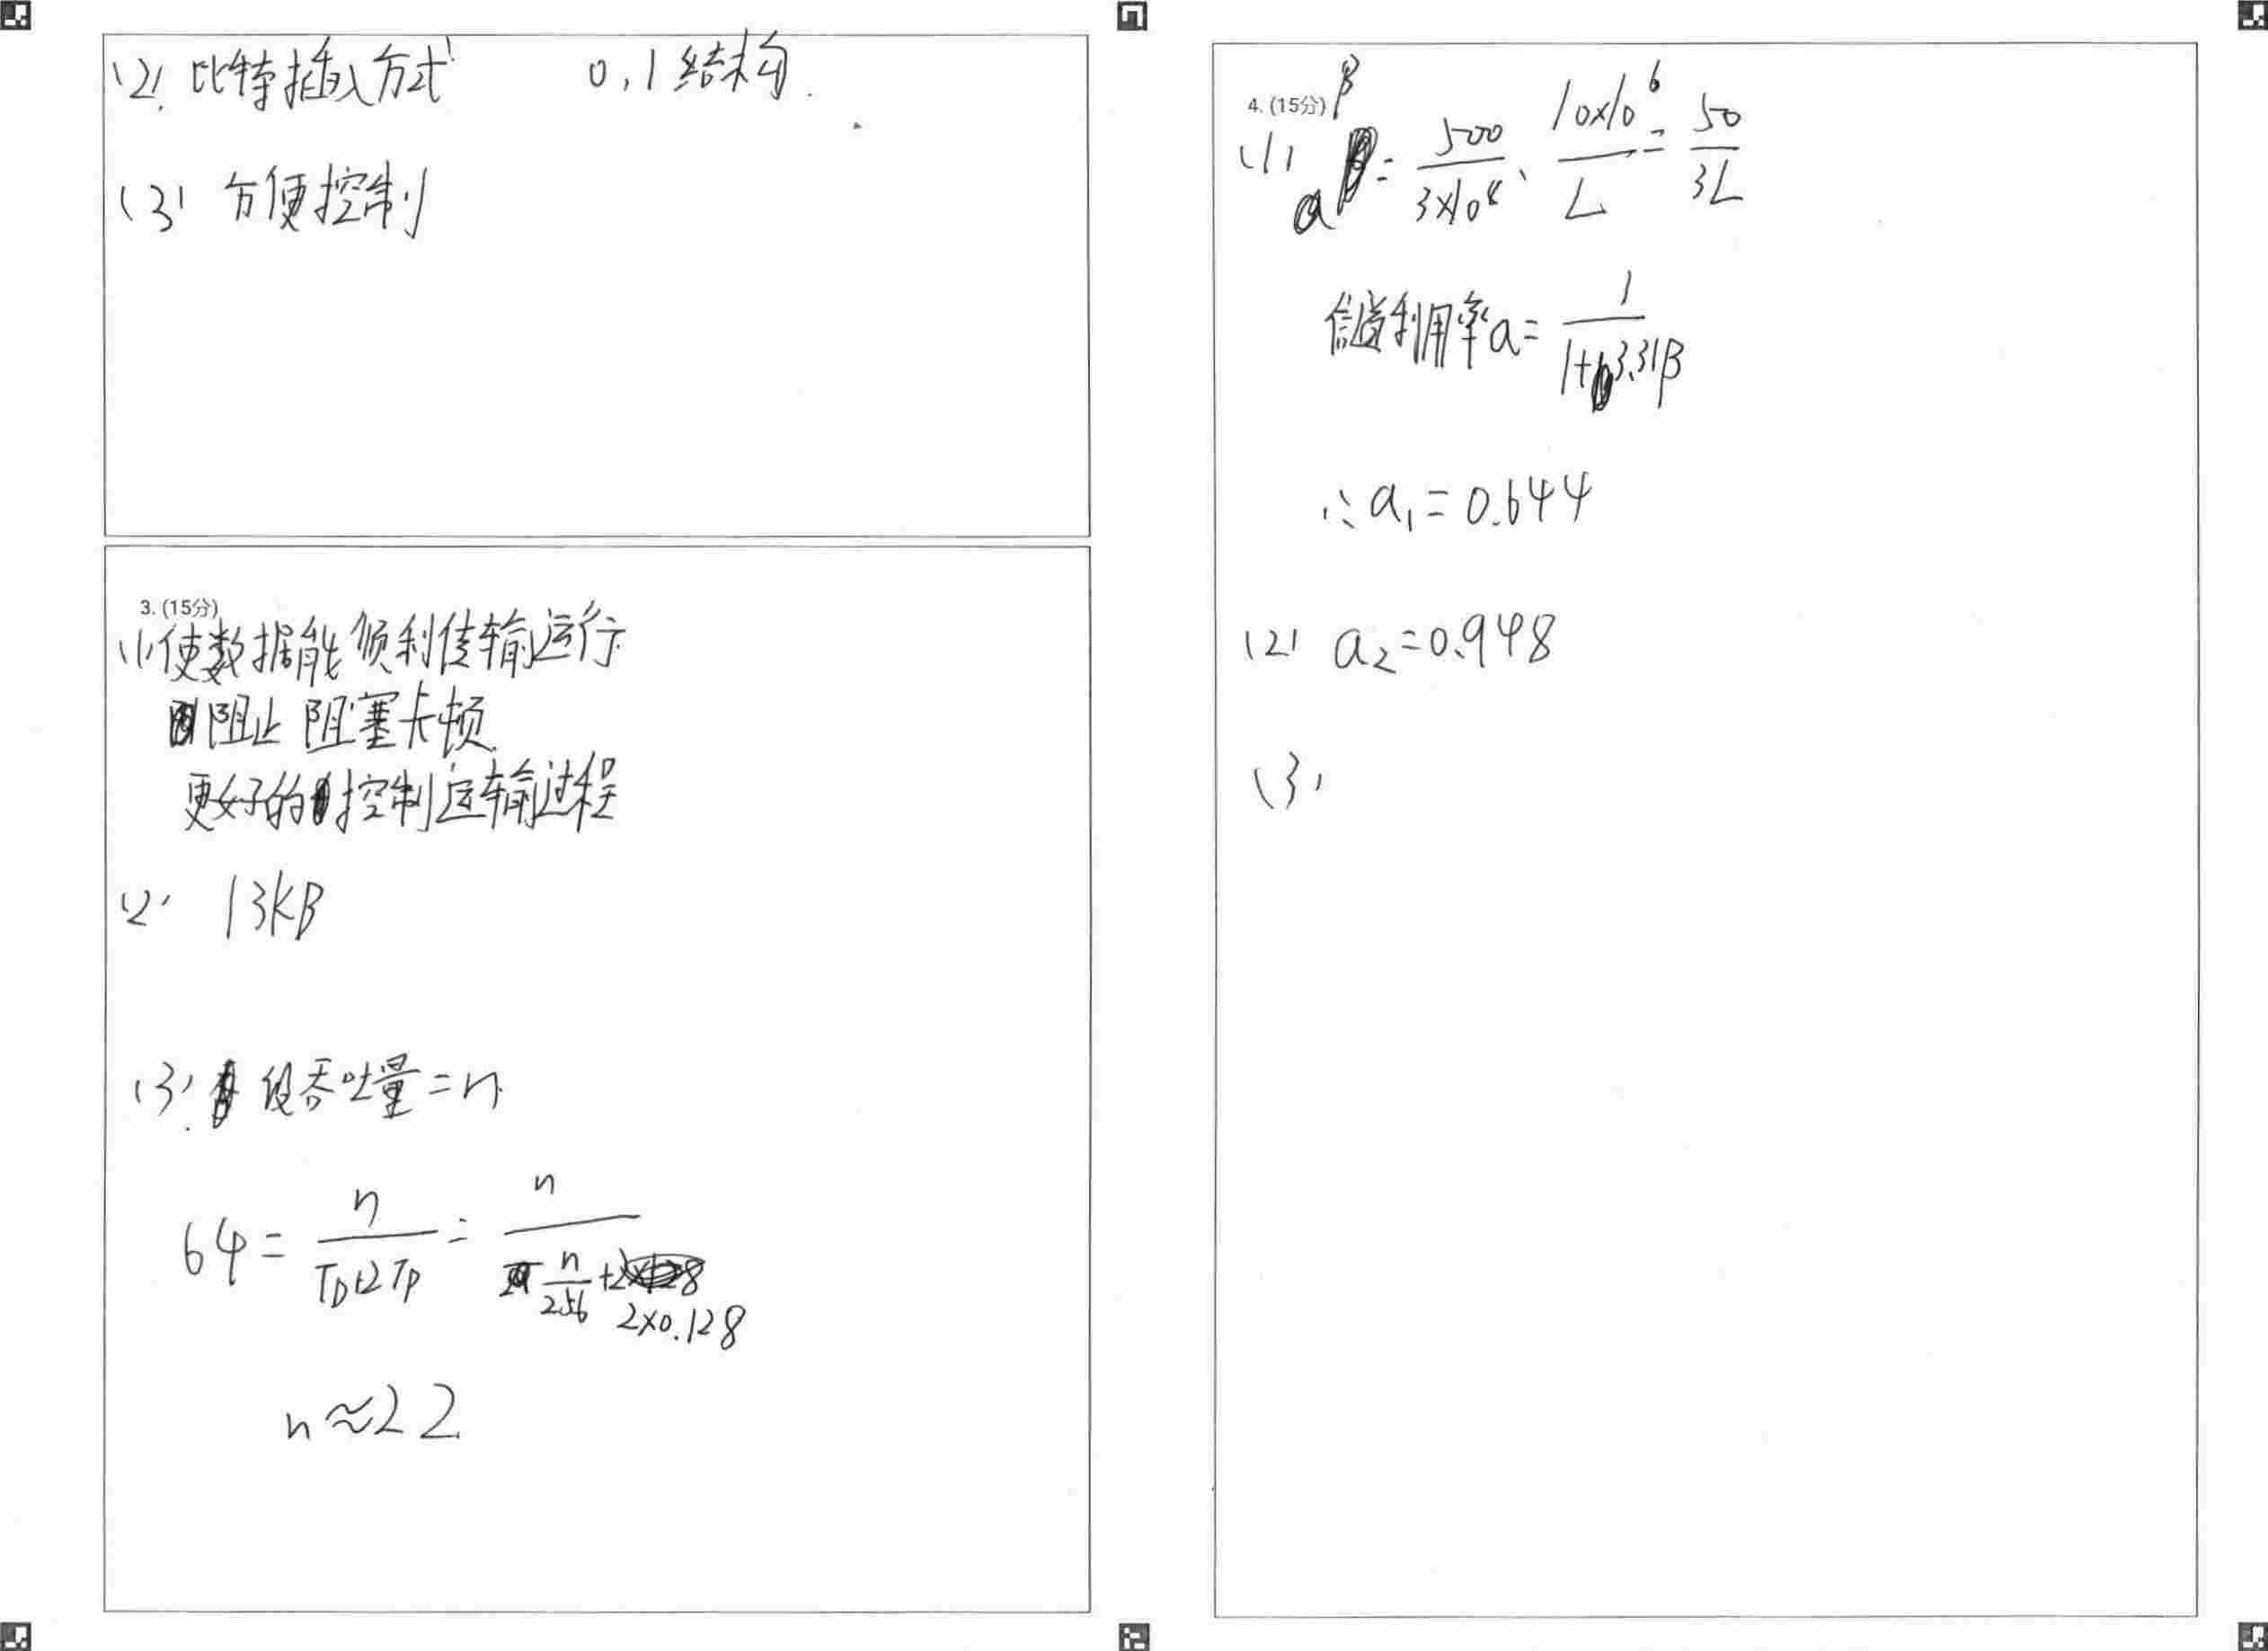 (2) 比特插入方式 0,1结构.
(3) 方便控制
3. (15分)
(1) 使数据能顺利传输运行
阻止阻塞卡顿
更好的控制运输过程
(2) 13KB
(3) 设吞吐量=n
64 = n/(TD+2TP) = n/(n/256+2×0.128)
n≈22
4. (15分)
(1) β = 500/(3×10^8) · (10×10^6)/L = 50/(3L)
信道利用率a = 1/(1+3.31β)
∴ a₁ = 0.644
(2) a₂ = 0.948
(3)